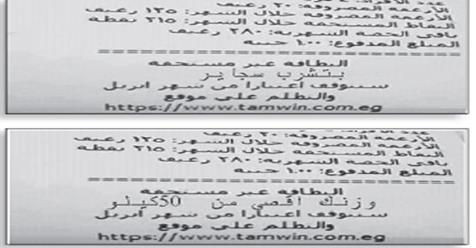 الأرغفة المصروفة: ٢٠ رغيف
الأرغفة المصروفة خلال الشهر: ١٢٥ رغيف
النقاط المستحقة خلال الشهر: ٢١٥ نقطة
باقى الحصة الشهرية: ٢٨٠ رغيف
المبلغ المدفوع: ١.٠٠ جنيه
البطاقه غير مستحقه
بتشرب سجاير
ستتوقف اعتبارا من شهر ابريل
والتظلم على موقع
https://www.tamwin.com.eg
الأرغفة المصروفة خلال الشهر: ١٢٥ رغيف
النقاط المستحقة خلال الشهر: ٢١٥ نقطة
باقى الحصة الشهرية: ٢٨٠ رغيف
المبلغ المدفوع: ١.٠٠ جنيه
البطاقه غير مستحقه
وزنك اقصي من 50كيلو
ستتوقف اعتبارا من شهر ابريل
والتظلم على موقع
https://www.tamwin.com.eg